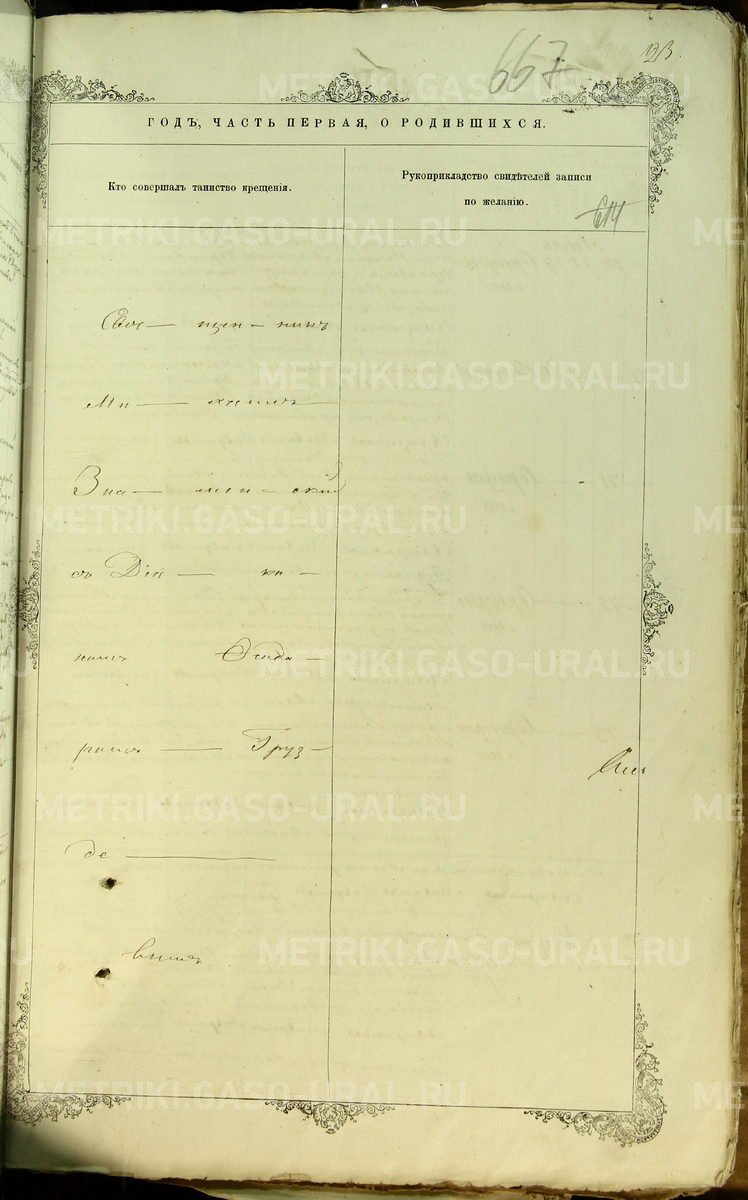 667
123.
ГОДЪ, ЧАСТЬ ПЕРВАЯ, О РОДИВШИХСЯ.
Кто совершалъ таинство крещенія.
Рукоприкладство свидѣтелей записи
по желанію.
614
Свя— щен — никъ
Ми — хаилъ —
Зна — мен — скій
съ Дія — ко —
номъ Ѳеодо —
ромъ — Груз —
де —
вымъ
METRIKI.GASO-URAL.RU